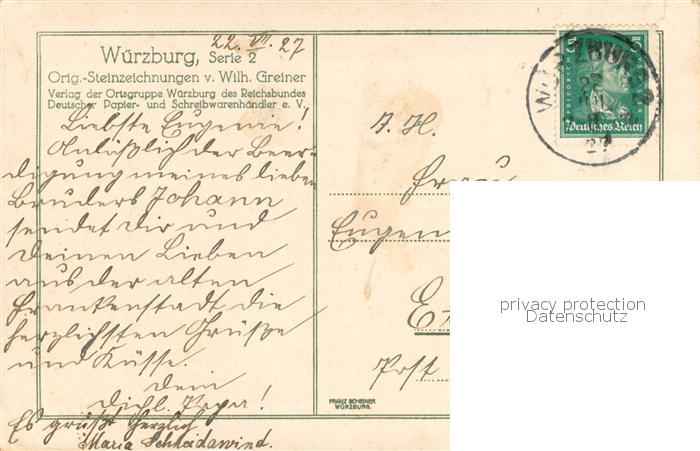 22. VII. 27
Würzburg, Serie 2
Orig.-Steinzeichnungen v. Wilh. Greiner
Verlag der Ortsgruppe Würzburg des Reichsbundes
Deutscher Papier- und Schreibwarenhändler e. V.
Liebste Eugenie!
Anläßlich der Beer-
digung meines lieben
Bruders Johann
sendet dir und
deinen Lieben
aus der alten
Frankenstadt die
herzlichsten Grüße
und Küsse.
Dein
dichl. Papa!
Es grüßt herzlich
Maria Schneidawind.
FRIEDRICH
Deutsches Reich
27
A. H.
Frau
Eugen
Post
FRANZ SCHEINER
WÜRZBURG.
privacy protection
Datenschutz